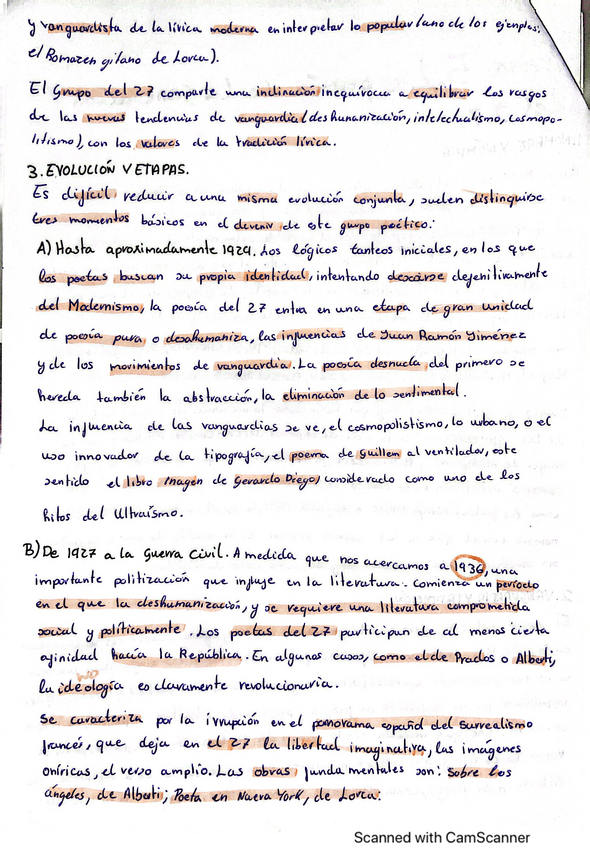 y vanguardista de la lírica moderna en interpretar lo popular (uno de los ejemplos:
el Romazen gitano de Lorca).
El Grupo del 27 comparte una inclinación inequívoca a equilibrar los rasgos
de las nuevas tendencias de vanguardia (deshumanización, intelectualismo, cosmopo-
litismo), con los valores de la tradición lírica.
3. EVOLUCIÓN Y ETAPAS.
Es difícil reducir a una misma evolución conjunta, suelen distinguirse
tres momentos básicos en el devenir de este grupo poético:
A) Hasta aproximadamente 1929. Los lógicos tanteos iniciales, en los que
los poetas buscan su propia identidad, intentando desasirse dejenitivamente
del Modernismo, la poesía del 27 entra en una etapa de gran unidad
de poesía pura o deshumaniza, las influencias de Juan Ramón Jiménez
y de los movimientos de vanguardia. La poesía desnuda del primero se
hereda también la abstracción, la eliminación de lo sentimental.
La influencia de las vanguardias se ve, el cosmopolistismo, lo urbano, o el
uso innovador de la tipografía, el poema de Guillen al ventilador, este
sentido el libro Imagen de Gerardo Diego, considerado como uno de los
hitos del Ultraísmo.
B) De 1927 a la Guerra Civil. A medida que nos acercamos a 1936, una
importante politización que influye en la literatura. Comienza un período
en el que la deshumanización, y se requiere una literatura comprometida
social y políticamente. Los poetas del 27 participan de al menos cierta
afinidad hacía la República. En algunas casos, como el de Prados o Alberti,
no
la ideología es claramente revolucionaria.
Se caracteriza por la irrupción en el panorama español del surrealismo
francés, que deja en el 27 la libertad imaginativa, las imágenes
oníricas, el verso amplio. Las obras fundamentales son: Sobre los
ángeles, de Alberti; Poeta en Nueva York, de Lorca.
Scanned with CamScanner